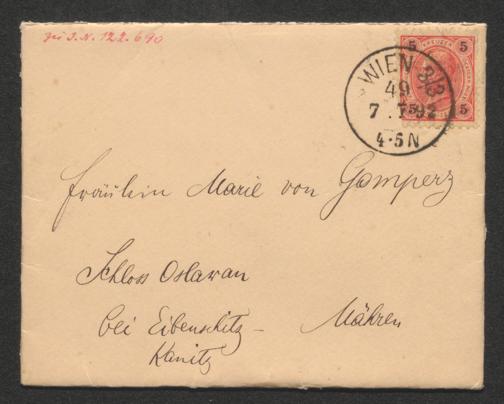 zu I.N. 122.690
5 5
KREUZER
WIEN 3/3
49
7 . 7. 92
4·5N
5 5
Fräulein Marie von Gomperz
Schloss Oslawan
bei Eibenschitz – Mähren
Kanitz